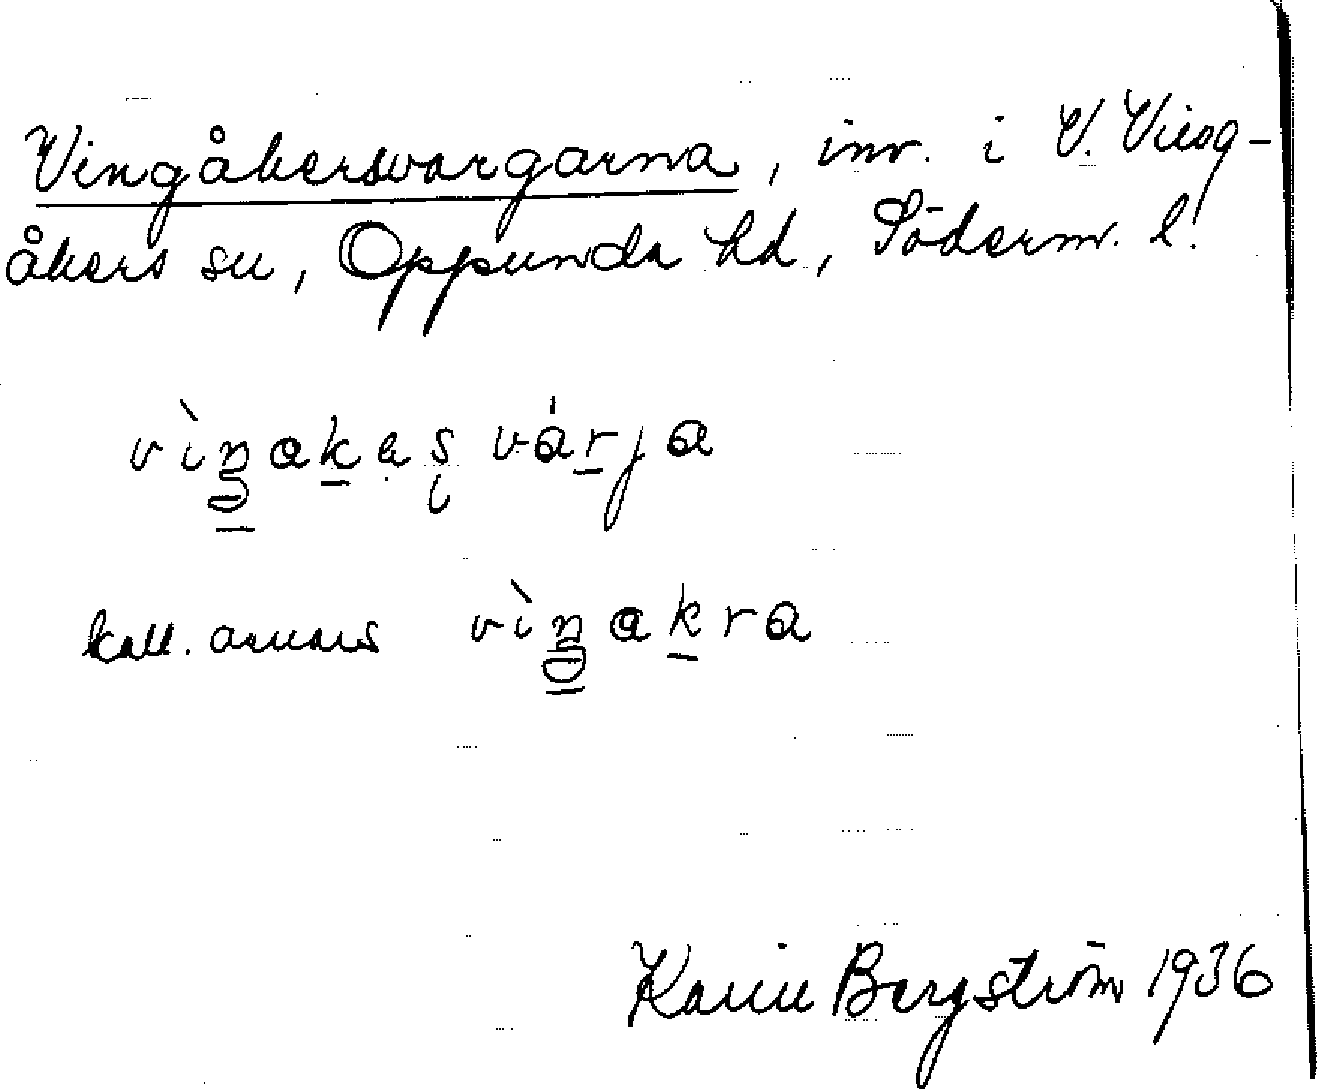 Vingåkersvargarna, inv. i V. Ving-
åkers sn, Oppunda hd, Söderm. l.
vìŋakaş várja
kall. annars vìŋakra
Karin Bergström 1936